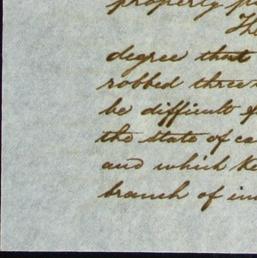 property pu
The
degree that
robbed three
be difficult f
the state of ca
and which ke
branch of in